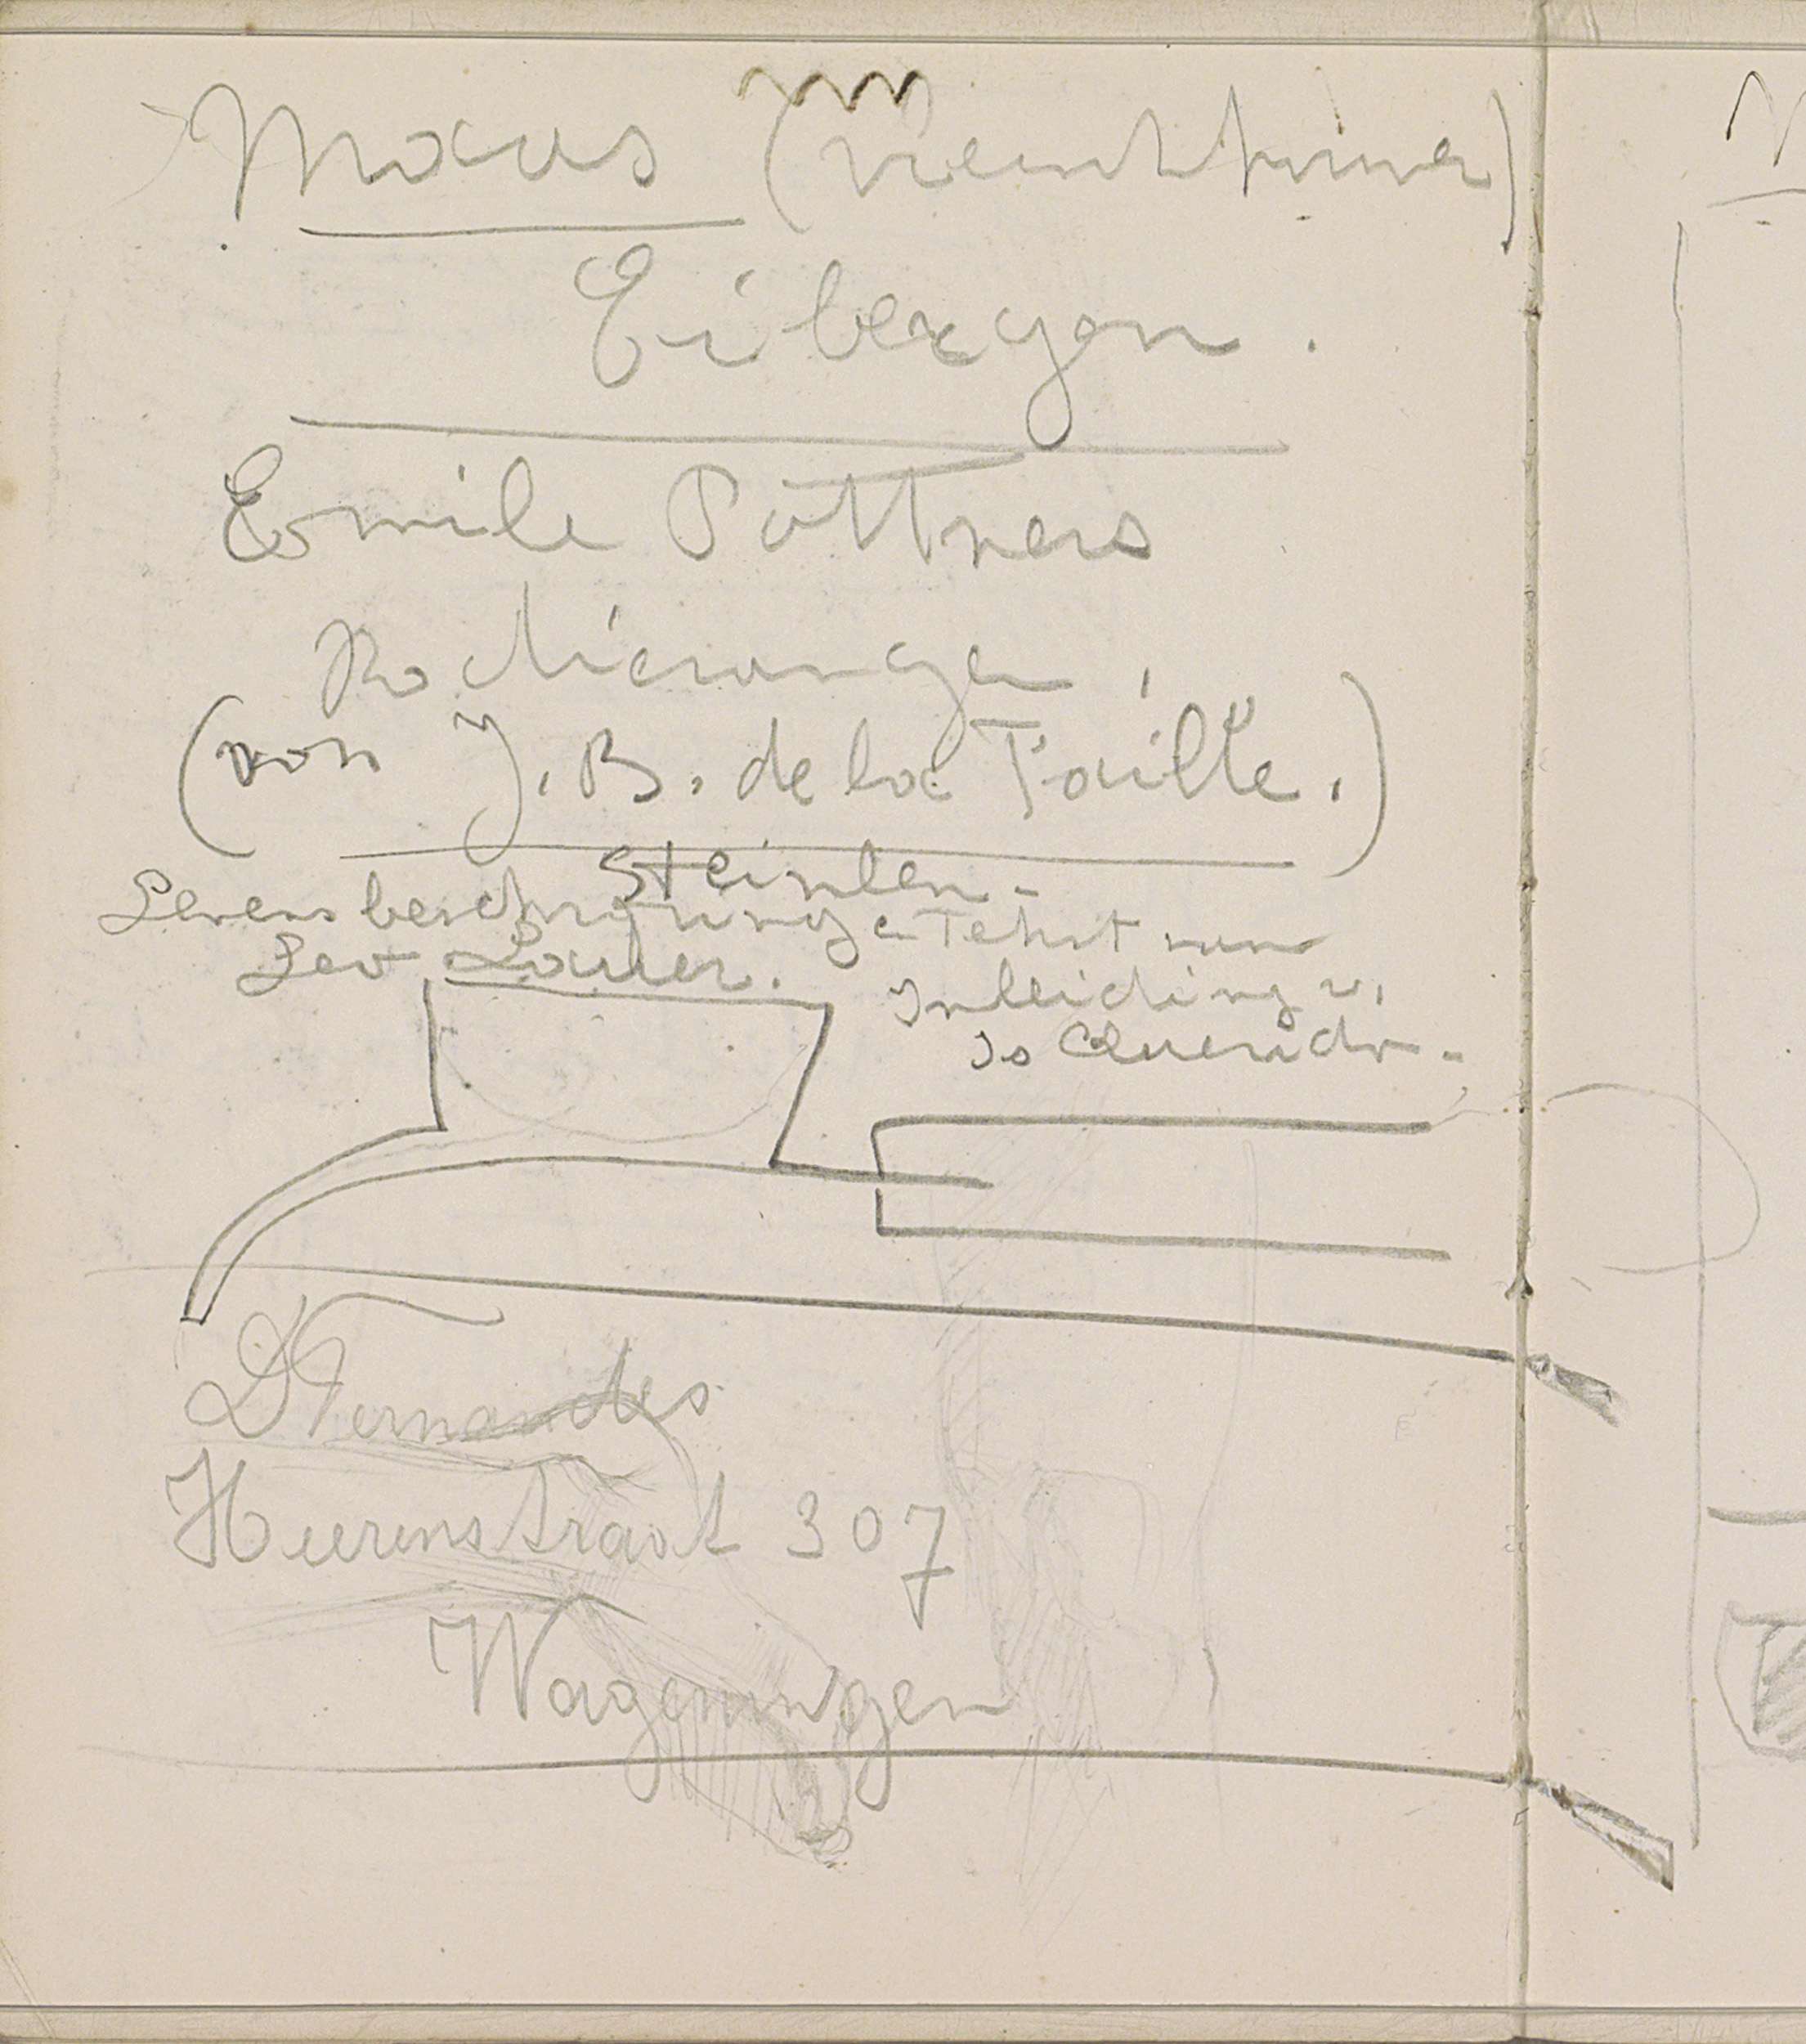 Maxus
Eibergen.
Emile Pottners
Radierungen
(von J. B. de la Faille.)
Steinlen-
Levensbeschrijving en Tekst van
Leo Lauer.
Inleiding v.
Is Querido-
D Fernandes
Heerenstraat 307
Wageningen